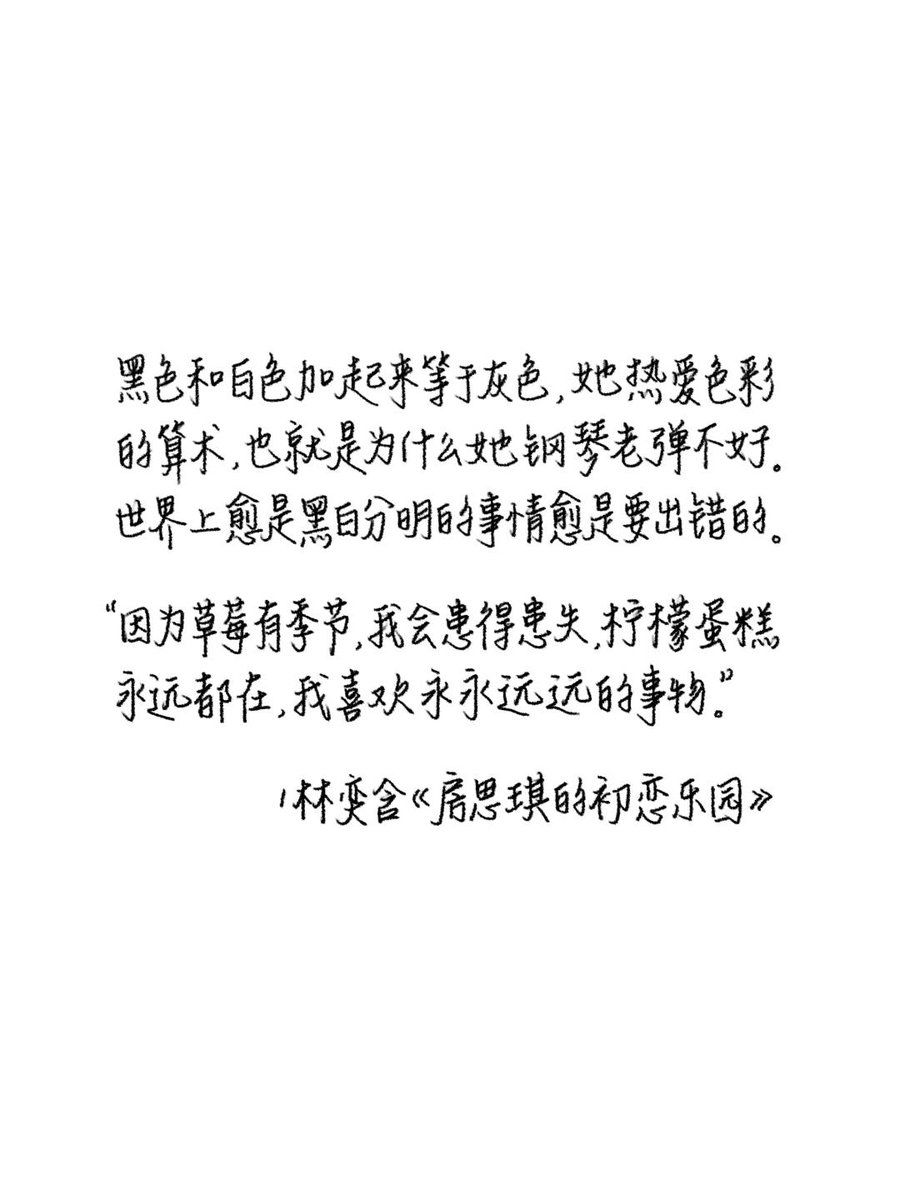 黑色和白色加起来等于灰色,她热愛色彩
的算术,也就是为什么她钢琴老弹不好。
世界上愈是黑白分明的事情愈是要出错的。
“因为草莓有季节,我会患得患失,柠檬蛋糕
永远都在,我喜欢永永远远的事物。”
/林奕含《房思琪的初恋乐园》